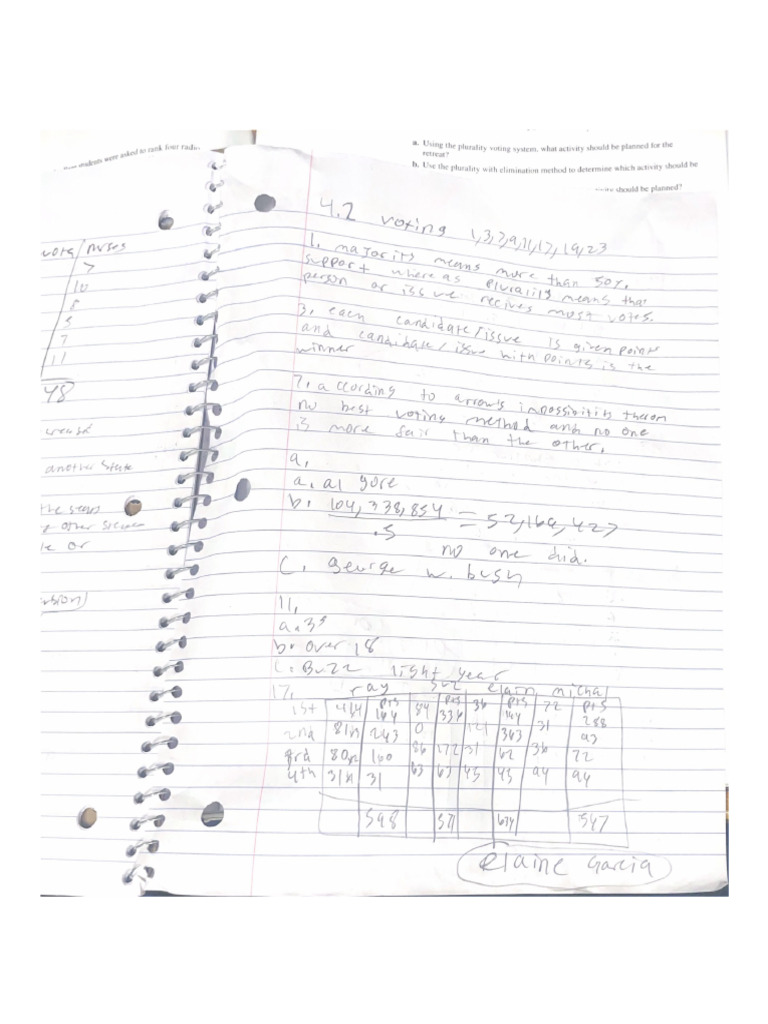 students were asked to rank four radio
a. Using the plurality voting system, what activity should be planned for the
retreat?
b. Use the plurality with elimination method to determine which activity should be
should be planned?
vote/nurses
7
10
8
5
7
11
48
another state
the steps
or
4.2 voting 1,3,7,9,11,17,19,23
1. majority means more than 50%
support where as plurality means that
person or issue recives most votes.
3. each candidate/issue is given points
and candidate/issue with points is the
winner
7. according to arrow's impossibility theorm
no best voting method and no one
is more fair than the other.
9.
a. al gore
b. 104,338,854 = 52,169,427
.5
no one did.
C. george w. bush
11.
a. 35
b. over 18
C. Buzz light year
17. ray suz elain michal
1st 41/4 pts 164 84 pts 336 36 pts 144 72 pts 288
2nd 81/3 243 0 121 363 31 93
3rd 80/2 160 86 172 31 62 36 72
4th 31/1 31 63 63 45 45 94 94
598 571 614 547
Elaine Garcia